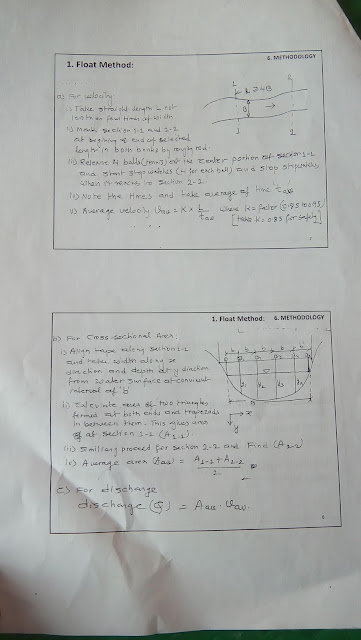 6. METHODOLOGY
1. Float Method:
a) For velocity
i) Take straight length L not
less than four times of width
ii) Mark section 1-1 and 2-2
at begining & end of selected
length in both banks by ranging rod.
iii) Release 4 balls (tennis) at the center portion of section 1-1
and start stop watches (4 for each ball) and stop stopwatches
when it reaches to section 2-2.
iv) Note the times and take average of time tav
v) Average velocity Vav = K × L/tav where K = factor (0.85 to 0.95)
[take K = 0.85 for safety]
L ≥ 4B
B
1
1
2
1. Float Method:
6. METHODOLOGY
b) For Cross-sectional Area:
i) Align tape along section 1-1
and take width along x
direction and depth at y direction
from water surface at convenient
interval of 'b'
ii) Calculate area of two triangles
formed at both ends and trapezoids
in between them. This gives area
of at section 1-1 (A1-1)
iii) Similarly proceed for section 2-2 and Find (A2-2)
iv) Average area (Aav) = A1-1 + A2-2 / 2
c) For discharge
discharge (Q) = Aav. Vav.
b b b b
B
x
y